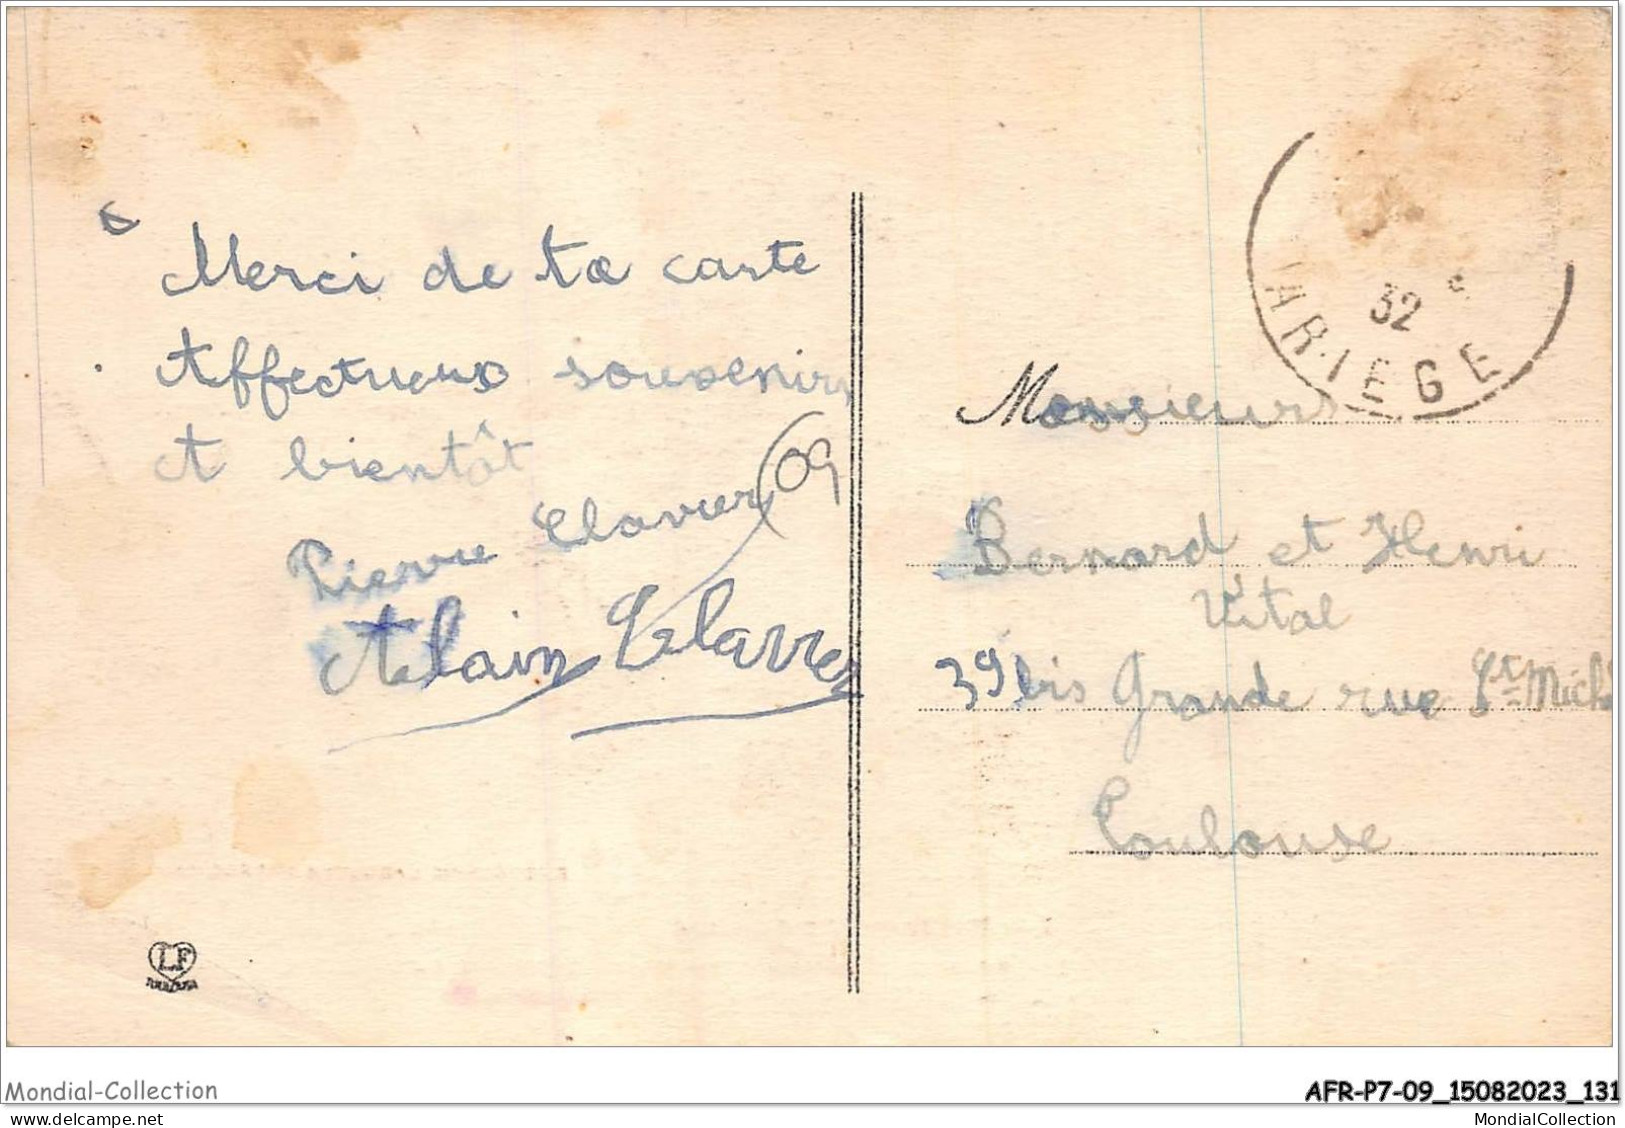 Merci de ta carte
Affectueux souvenirs
A bientôt
(09
Pierre Clavier
Alain Clavier
LF
32
ARIEGE
Monsieurs
Bernard et Henri
Vital
39 bis Grande rue St-Mich
Toulouse
Mondial-Collection
AFR-P7-09_15082023_131
MondialCollection